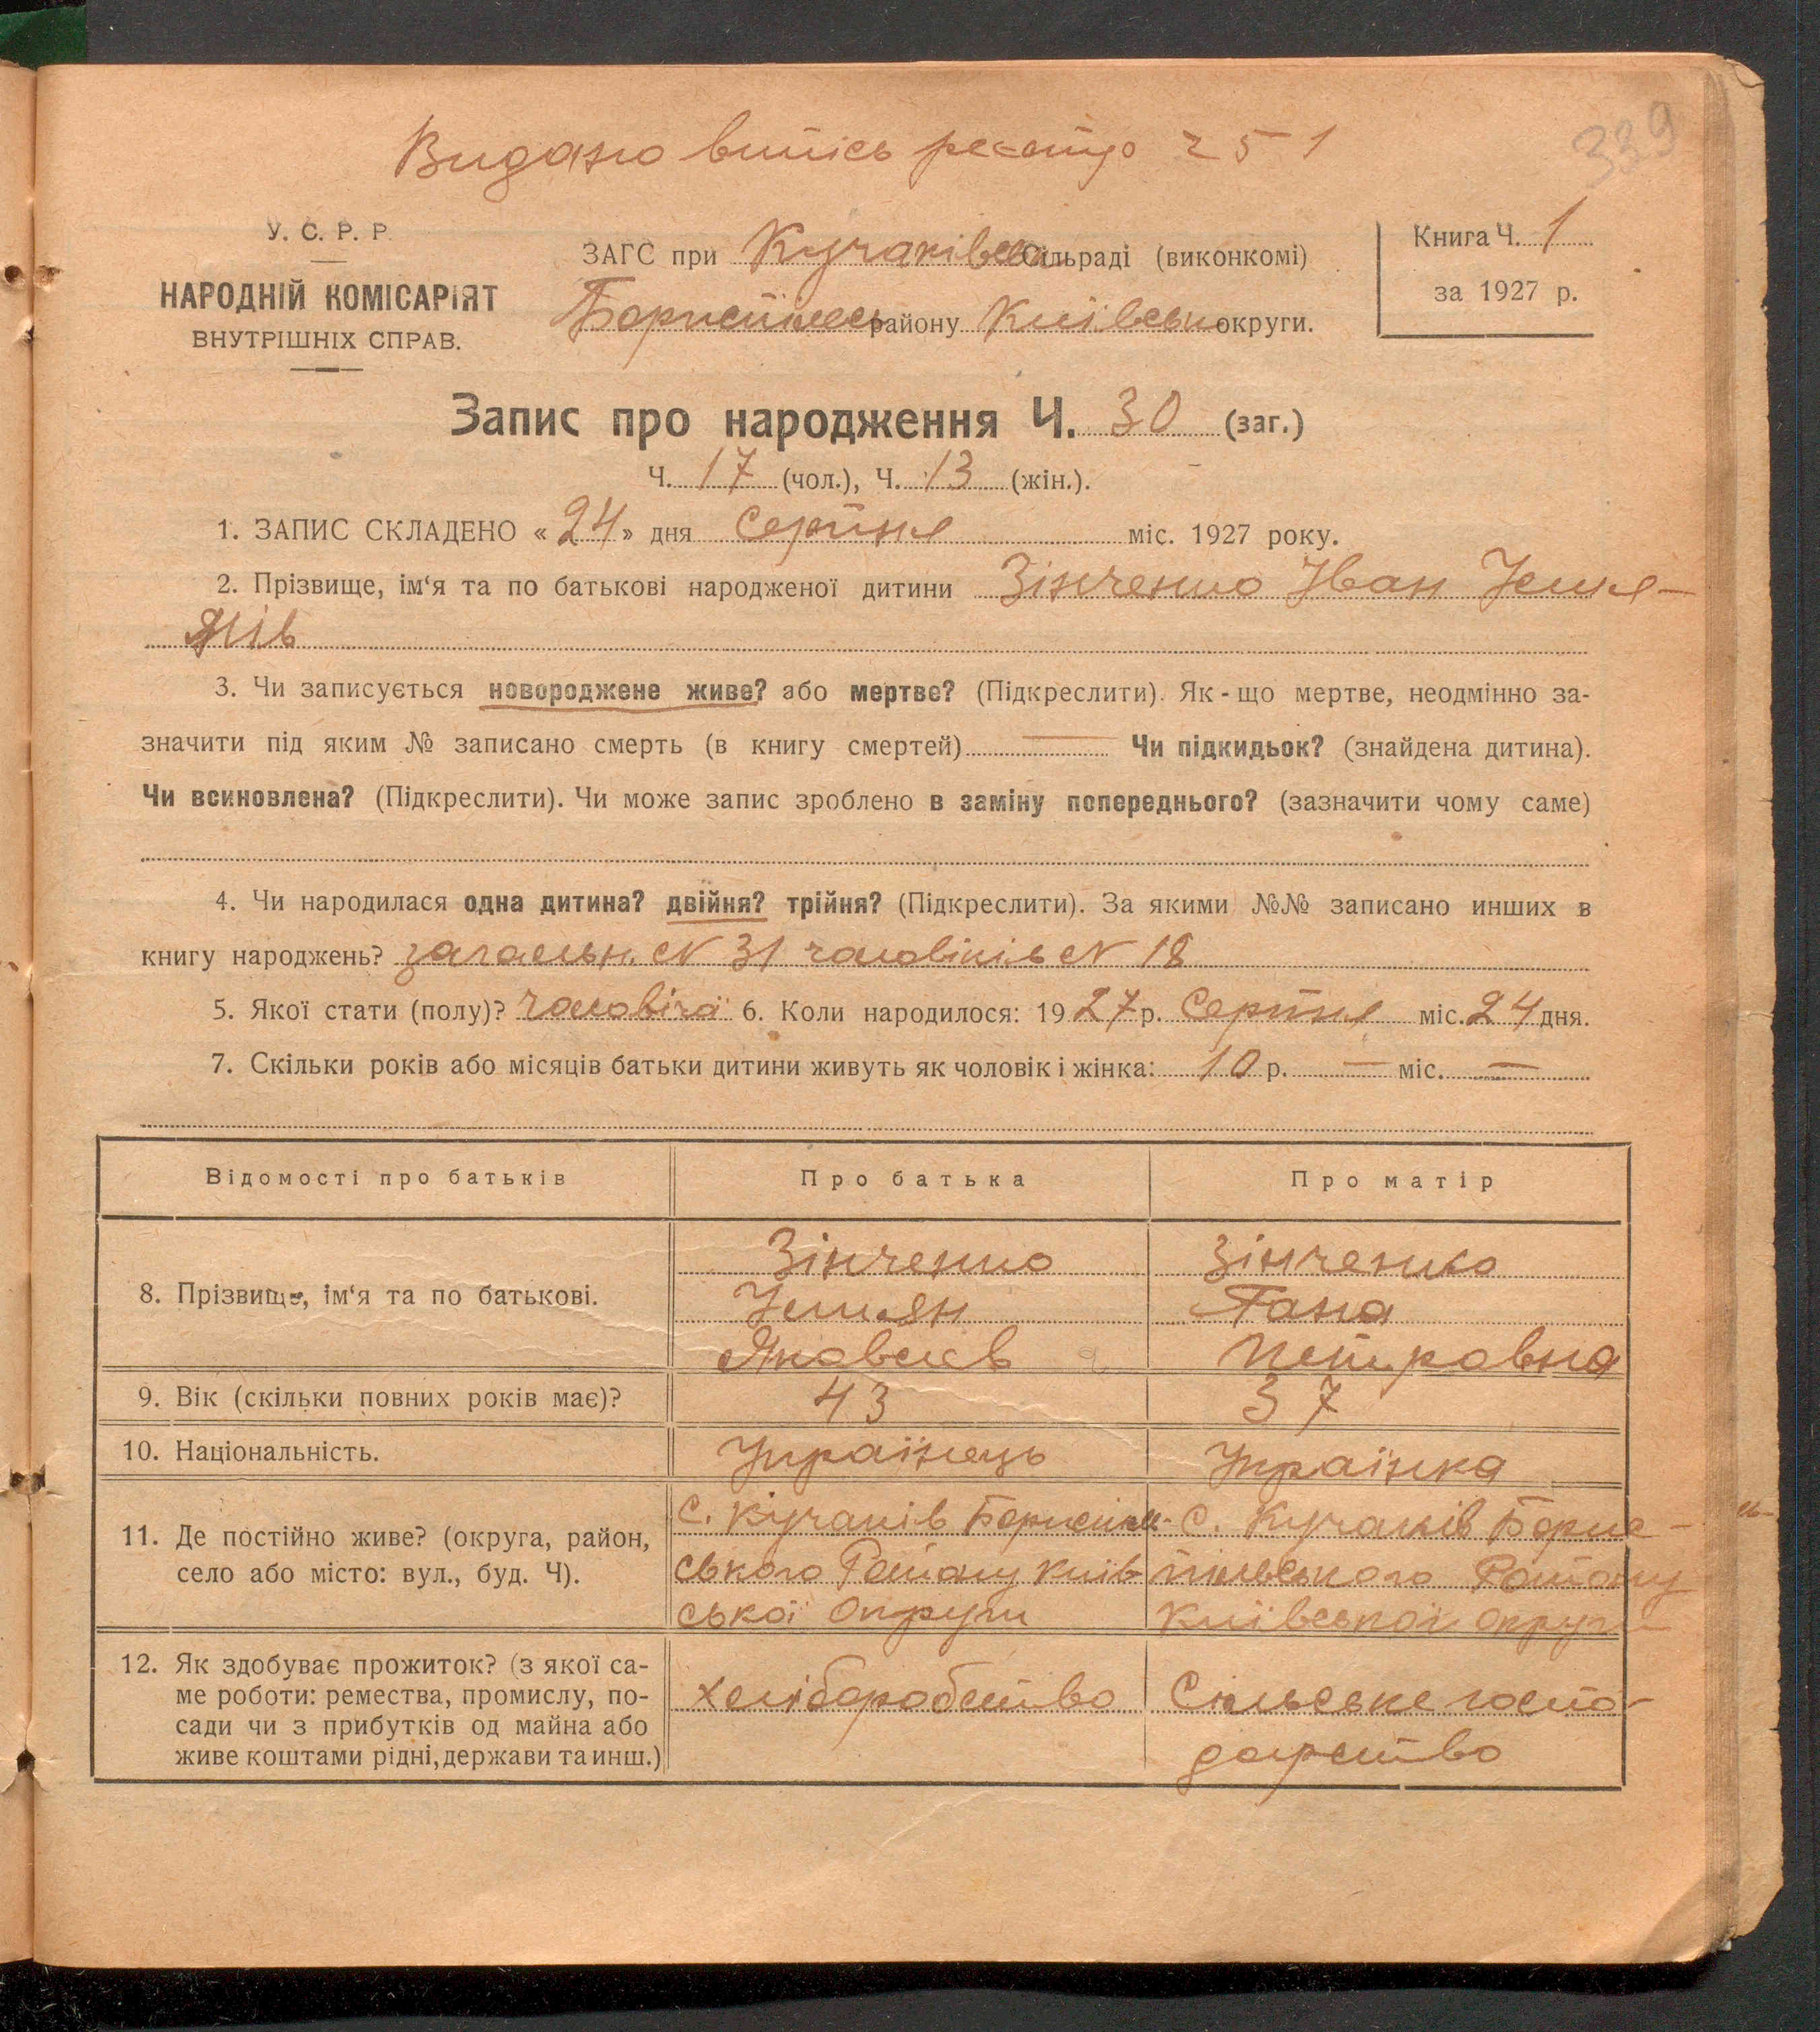 339
Видано випісь реєстр ч 51
У. С. Р. Р.
НАРОДНІЙ КОМІСАРІЯТ
ВНУТРІШНІХ СПРАВ.
ЗАГС при Кучаківськ Сільраді (виконкомі)
Бориспільськ району Київської округи.
Книга Ч. 1
за 1927 р.
Запис про народження Ч. 30 (заг.)
Ч. 17 (чол.), Ч. 13 (жін.).
1. ЗАПИС СКЛАДЕНО «24» дня Серпня міс. 1927 року.
2. Прізвище, ім‘я та по батькові народженої дитини Зінченко Іван
3. Чи записується новороджене живе? або мертве? (Підкреслити). Як-що мертве, неодмінно за-
значити під яким № записано смерть (в книгу смертей) — Чи підкидьок? (знайдена дитина).
Чи всиновлена? (Підкреслити). Чи може запис зроблено в заміну попереднього? (зазначити чому саме)
4. Чи народилася одна дитина? двійня? трійня? (Підкреслити). За якими №№ записано инших в
книгу народжень? загальн. № 31 чоловіків № 18
5. Якої стати (полу)? чоловічої 6. Коли народилося: 1927 р. Серпня міс. 24 дня.
7. Скільки років або місяців батьки дитини живуть як чоловік і жінка: 10 р. — міс. —
Відомості про батьків
Про батька
Про матір
8. Прізвище, ім‘я та по батькові.
Зінченко
Яковлєв
Зінченко
Гана
Петровна
9. Вік (скільки повних років має)?
43
37
10. Національність.
Українець
Українка
11. Де постійно живе? (округа, район,
село або місто: вул., буд. Ч).
с. Кучаків Бориспіль-
ського Району Київ-
ської Округи
с. Кучаків Борис-
пільського Району
Київської округи
12. Як здобуває прожиток? (з якої са-
ме роботи: ремества, промислу, по-
сади чи з прибутків од майна або
живе коштами рідні, держави та инш.)
хліборобство
Сільське госпо-
дарство